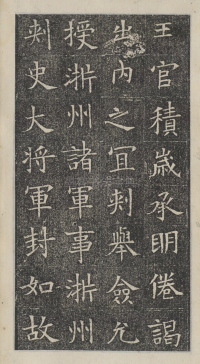 王官積歲承明倦謁
出内之宜刺舉僉允
授浙州諸軍事浙州
刺史大将軍封如故